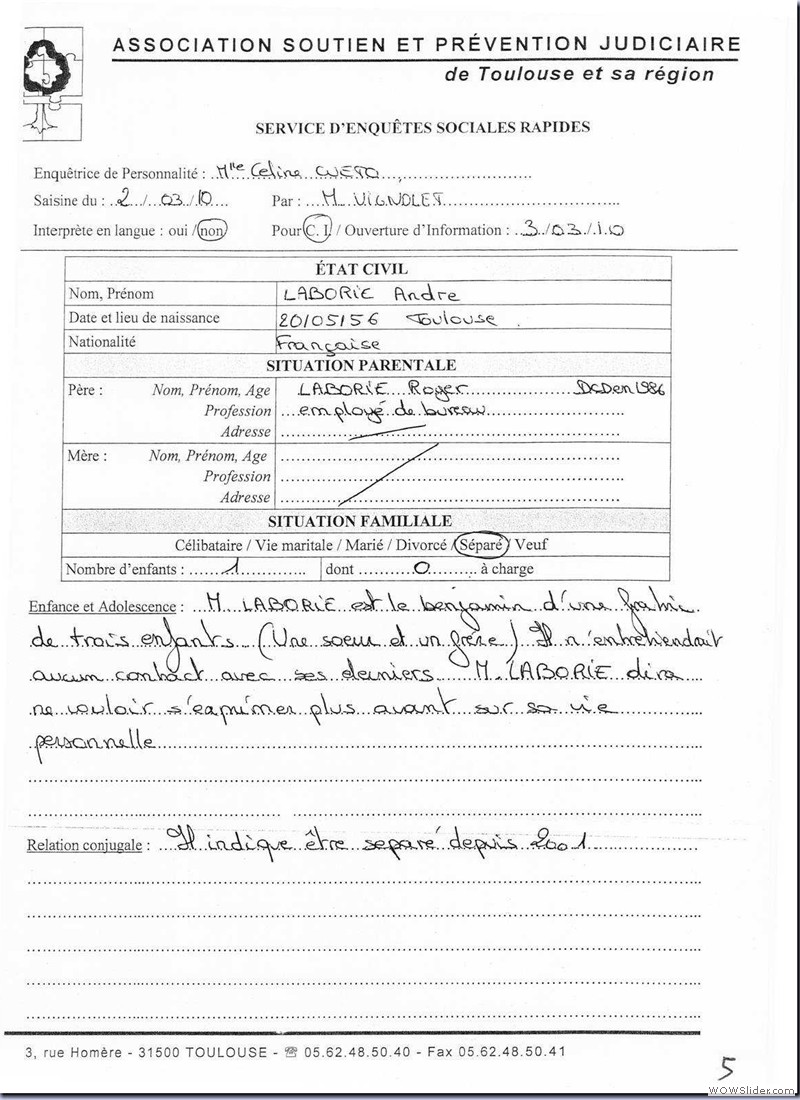 ASSOCIATION SOUTIEN ET PRÉVENTION JUDICIAIRE
de Toulouse et sa région
SERVICE D'ENQUÊTES SOCIALES RAPIDES
Enquêtrice de Personnalité : Mlle Celine CUETO
Saisine du : 2/03/10 Par : M VIGNOLET
Interprète en langue : oui / non Pour C. I. / Ouverture d'Information : 3/03/10
ÉTAT CIVIL
Nom, Prénom LABORIE Andre
Date et lieu de naissance 20/05/56 Toulouse
Nationalité Française
SITUATION PARENTALE
Père : Nom, Prénom, Age LABORIE Roger DCD en 1986
Profession employé de bureau
Adresse
Mère : Nom, Prénom, Age
Profession
Adresse
SITUATION FAMILIALE
Célibataire / Vie maritale / Marié / Divorcé / Séparé / Veuf
Nombre d'enfants : 1 dont 0 à charge
Enfance et Adolescence : M LABORIE est le benjamin d'une fratrie
de trois enfants (Une soeur et un frère) Il n'entretiendrait
aucun contact avec ses derniers M. LABORIE dira
ne vouloir s'exprimer plus avant sur sa vie
personnelle
Relation conjugale : Il indique être separé depuis 2001
3, rue Homère - 31500 TOULOUSE - ☏ 05.62.48.50.40 - Fax 05.62.48.50.41
5
WOWSlider.com